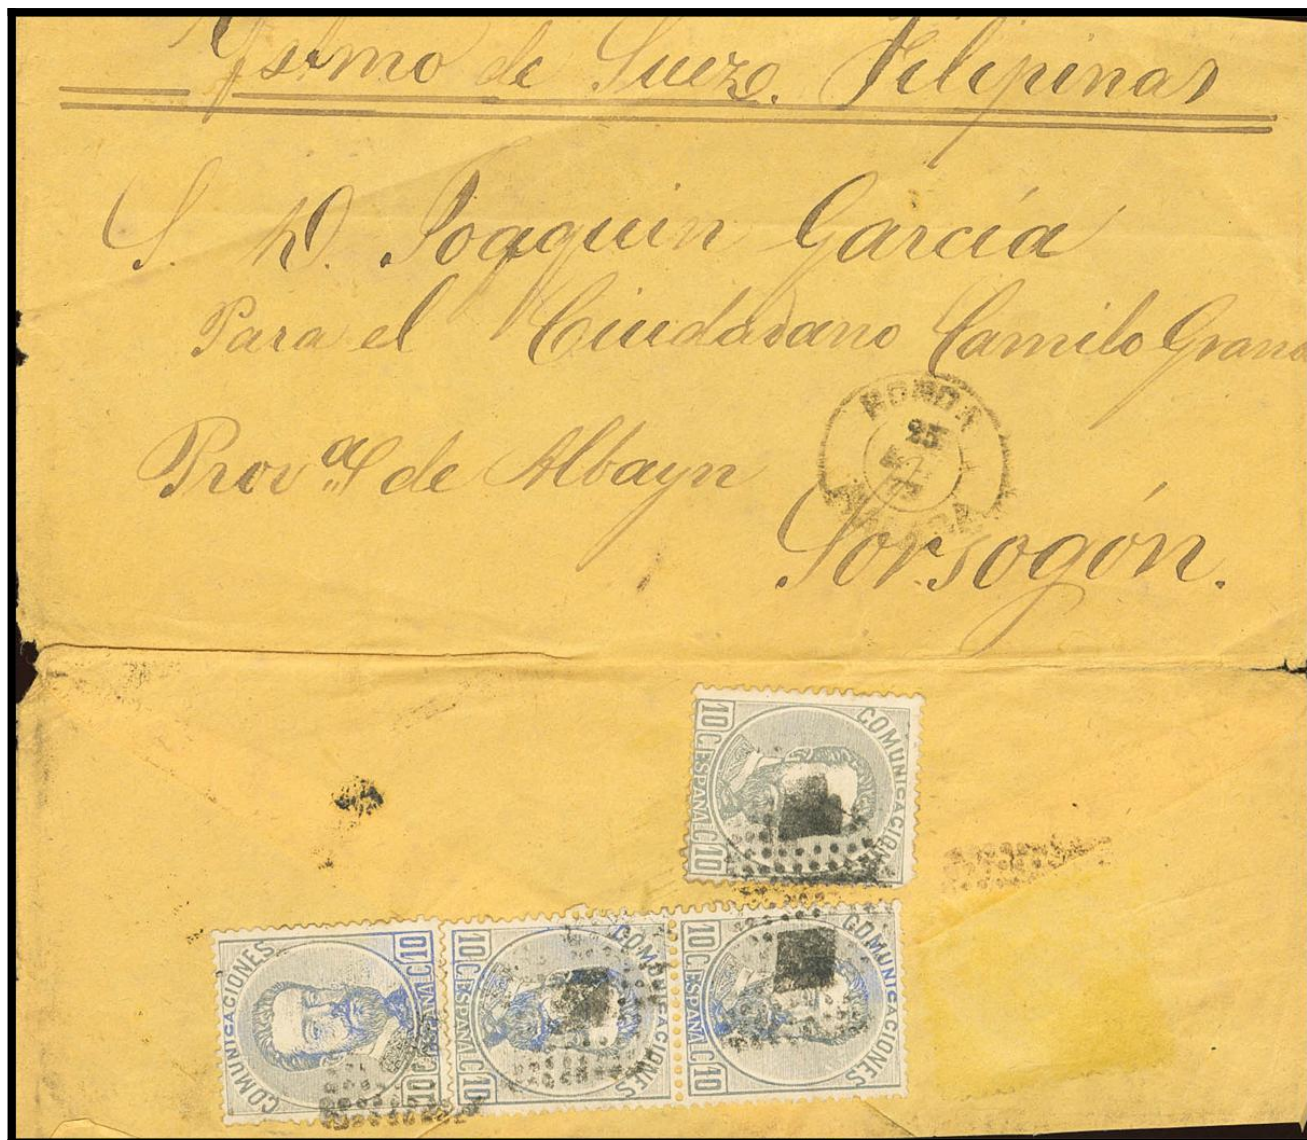 Ystmo de Suez. Filipinas
S. D. Joaquin García
Para el Ciudadano Camilo Grand
Prov.ª de Albayn
RONDA
25
Sorsogón.
COMUNICACIONES
10 C ESPAÑA C 10
COMUNICACIONES
10 C ESPAÑA C 10
COMUNICACIONES
10 C ESPAÑA C 10
COMUNICACIONES
10 C ESPAÑA C 10